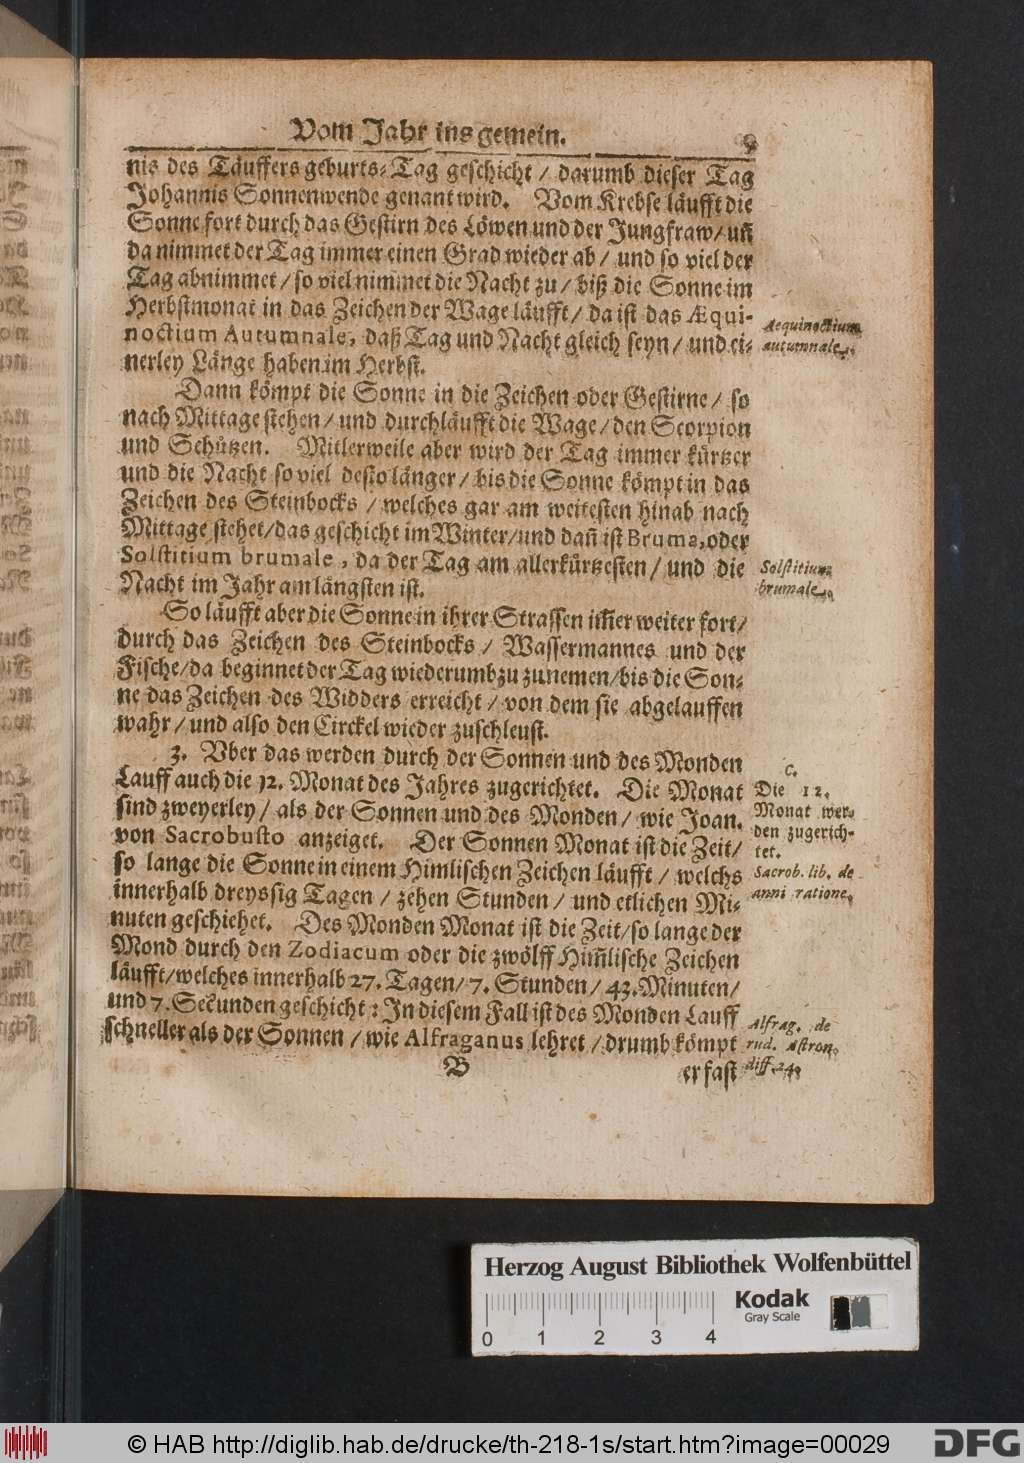 Vom Jahr ins gemein. 9
nis des Täuffers geburts-Tag geschicht / darumb dieser Tag
Johannis Sonnenwende genant wird. Vom Krebse läufft die
Sonne fort durch das Gestirn des Löwen und der Jungfraw / uñ
da nimmet der Tag immer einen Grad wieder ab / und so viel der
Tag abnimmet / so viel nimmet die Nacht zu / biß die Sonne im
Herbstmonat in das Zeichen der Wage läufft / da ist das Æqui-
noctium Autumnale, daß Tag und Nacht gleich seyn / und ei-
nerley Länge haben im Herbst.
Aequinoctium
autumnale.
Dann kömpt die Sonne in die Zeichen oder Gestirne / so
nach Mittage stehen / und durchläufft die Wage / den Scorpion
und Schützen. Mitlerweile aber wird der Tag immer kürtzer
und die Nacht so viel desto länger / bis die Sonne kömpt in das
Zeichen des Steinbocks / welches gar am weitesten hinab nach
Mittage stehet / das geschicht im Winter / und dañ ist Bruma, oder
Solstitium brumale, da der Tag am allerkürtzesten / und die
Nacht im Jahr am längsten ist.
Solstitium
brumale.
So läufft aber die Sonne in ihrer Strassen im̃er weiter fort /
durch das Zeichen des Steinbocks / Wassermannes und der
Fische / da beginnet der Tag wiederumb zu zunemen / bis die Son-
ne das Zeichen des Widders erreicht / von dem sie abgelauffen
wahr / und also den Circkel wieder zuschleust.
3. Vber das werden durch der Sonnen und des Monden
Lauff auch die 12. Monat des Jahres zugerichtet. Die Monat
sind zweyerley / als der Sonnen und des Monden / wie Joan.
von Sacrobusto anzeiget. Der Sonnen Monat ist die Zeit /
so lange die Sonne in einem Himlischen Zeichen läufft / welchs
innerhalb dreyssig Tagen / zehen Stunden / und etlichen Mi-
nuten geschiehet. Des Monden Monat ist die Zeit / so lange der
Mond durch den Zodiacum oder die zwölff Him̃lische Zeichen
läufft / welches innerhalb 27. Tagen / 7. Stunden / 43. Minuten /
und 7. Secunden geschicht : In diesem Fall ist des Monden Lauff
schneller als der Sonnen / wie Alfraganus lehret / drumb kömpt
C.
Die 12.
Monat wer-
den zugerich-
tet.
Sacrob. lib. de
anni ratione.
Alfrag. de
rud. Astron.
diff. 24.
B er fast
Herzog August Bibliothek Wolfenbüttel
Kodak
Gray Scale
0 1 2 3 4
© HAB http://diglib.hab.de/drucke/th-218-1s/start.htm?image=00029
DFG